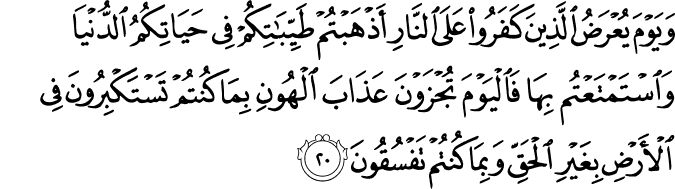 وَيَوْمَ يُعْرَضُ ٱلَّذِينَ كَفَرُوا۟ عَلَى ٱلنَّارِ أَذْهَبْتُمْ طَيِّبَٰتِكُمْ فِى حَيَاتِكُمُ ٱلدُّنْيَا
وَٱسْتَمْتَعْتُم بِهَا فَٱلْيَوْمَ تُجْزَوْنَ عَذَابَ ٱلْهُونِ بِمَا كُنتُمْ تَسْتَكْبِرُونَ فِى
ٱلْأَرْضِ بِغَيْرِ ٱلْحَقِّ وَبِمَا كُنتُمْ تَفْسُقُونَ ٢٠